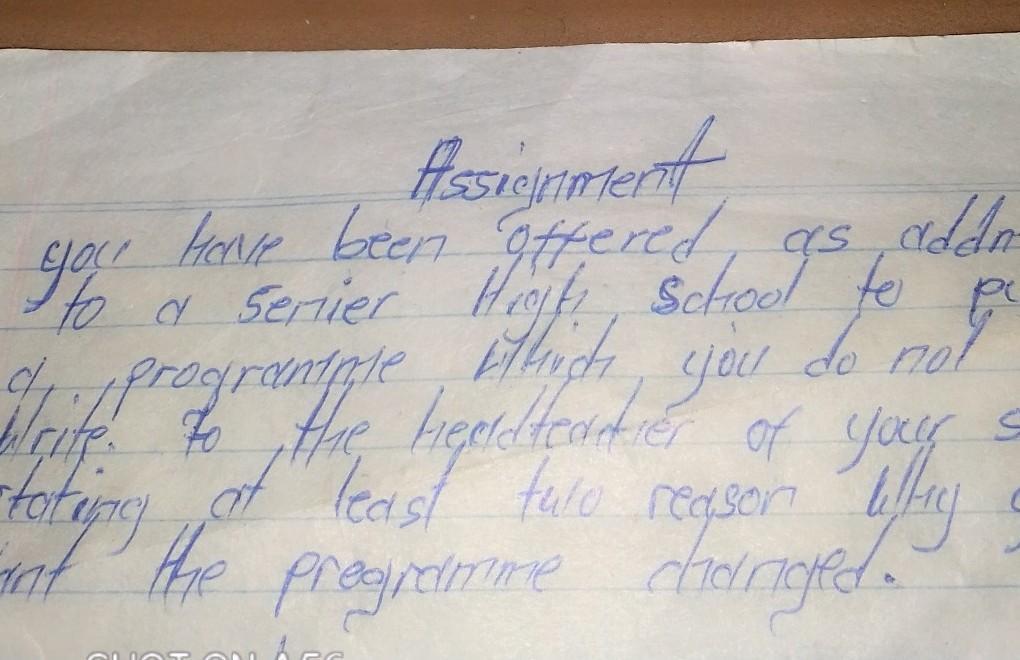 Assignment
you have been offered as addm
to a Senier High School to pu
a programme which you do not
Write. To the headteacher of your s
stating at least two reason why y
ant the programme changed.
SHOT ON A56